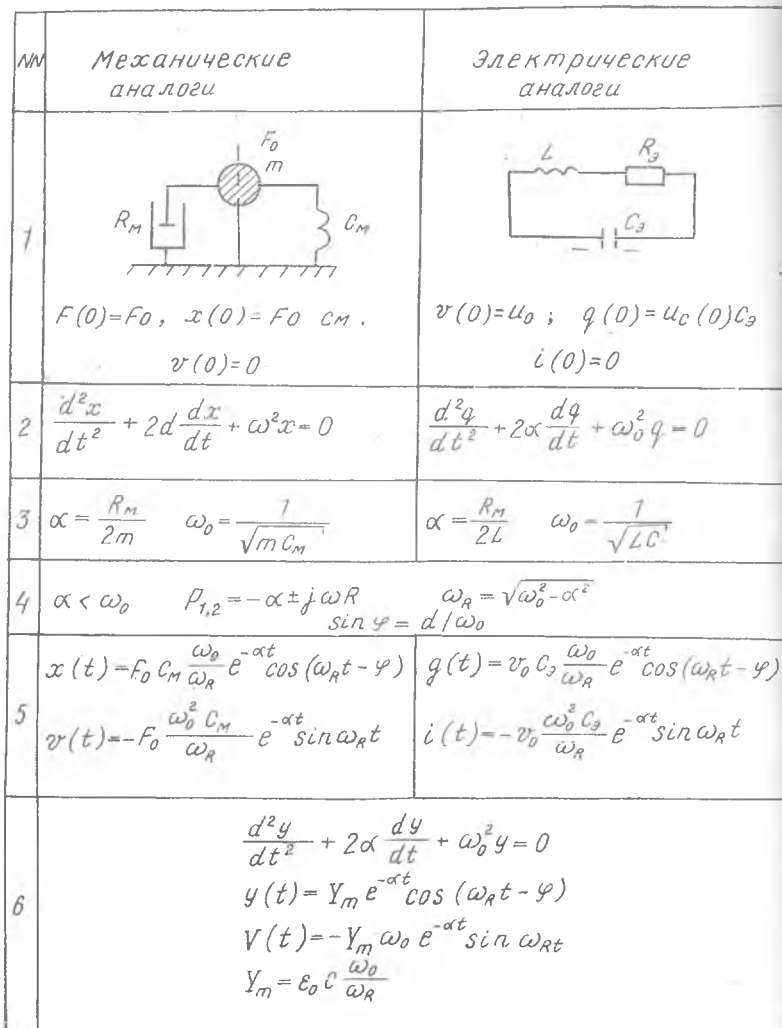 NN Механические аналоги Электрические аналоги
1
F₀
m
R_м
C_м
F(0)=F₀, x(0)=F₀ C_м.
v(0)=0
L
R_э
C_э
v(0)=u₀; q(0)=u_c(0)C_э
i(0)=0
2
d²x/dt² + 2d dx/dt + ω²x=0
d²q/dt² + 2α dq/dt + ω₀² q=0
3
α = R_м/2m ω₀ = 1/√(m C_м)
α = R_м/2L ω₀ = 1/√(LC)
4
α < ω₀ P₁,₂ = -α ± jωR ω_R = √(ω₀²-α²)
sin φ = d/ω₀
5
x(t)=F₀ C_м ω₀/ω_R e^(-αt) cos(ω_R t - φ)
v(t)=-F₀ ω₀² C_м/ω_R e^(-αt) sin ω_R t
g(t)=v₀ C_э ω₀/ω_R e^(-αt) cos(ω_R t - φ)
i(t)=-v₀ ω₀² C_э/ω_R e^(-αt) sin ω_R t
6
d²y/dt² + 2α dy/dt + ω₀² y=0
y(t)=Y_m e^(-αt) cos (ω_R t - φ)
V(t)=-Y_m ω₀ e^(-αt) sin ω_Rt
Y_m = ε₀ C ω₀/ω_R